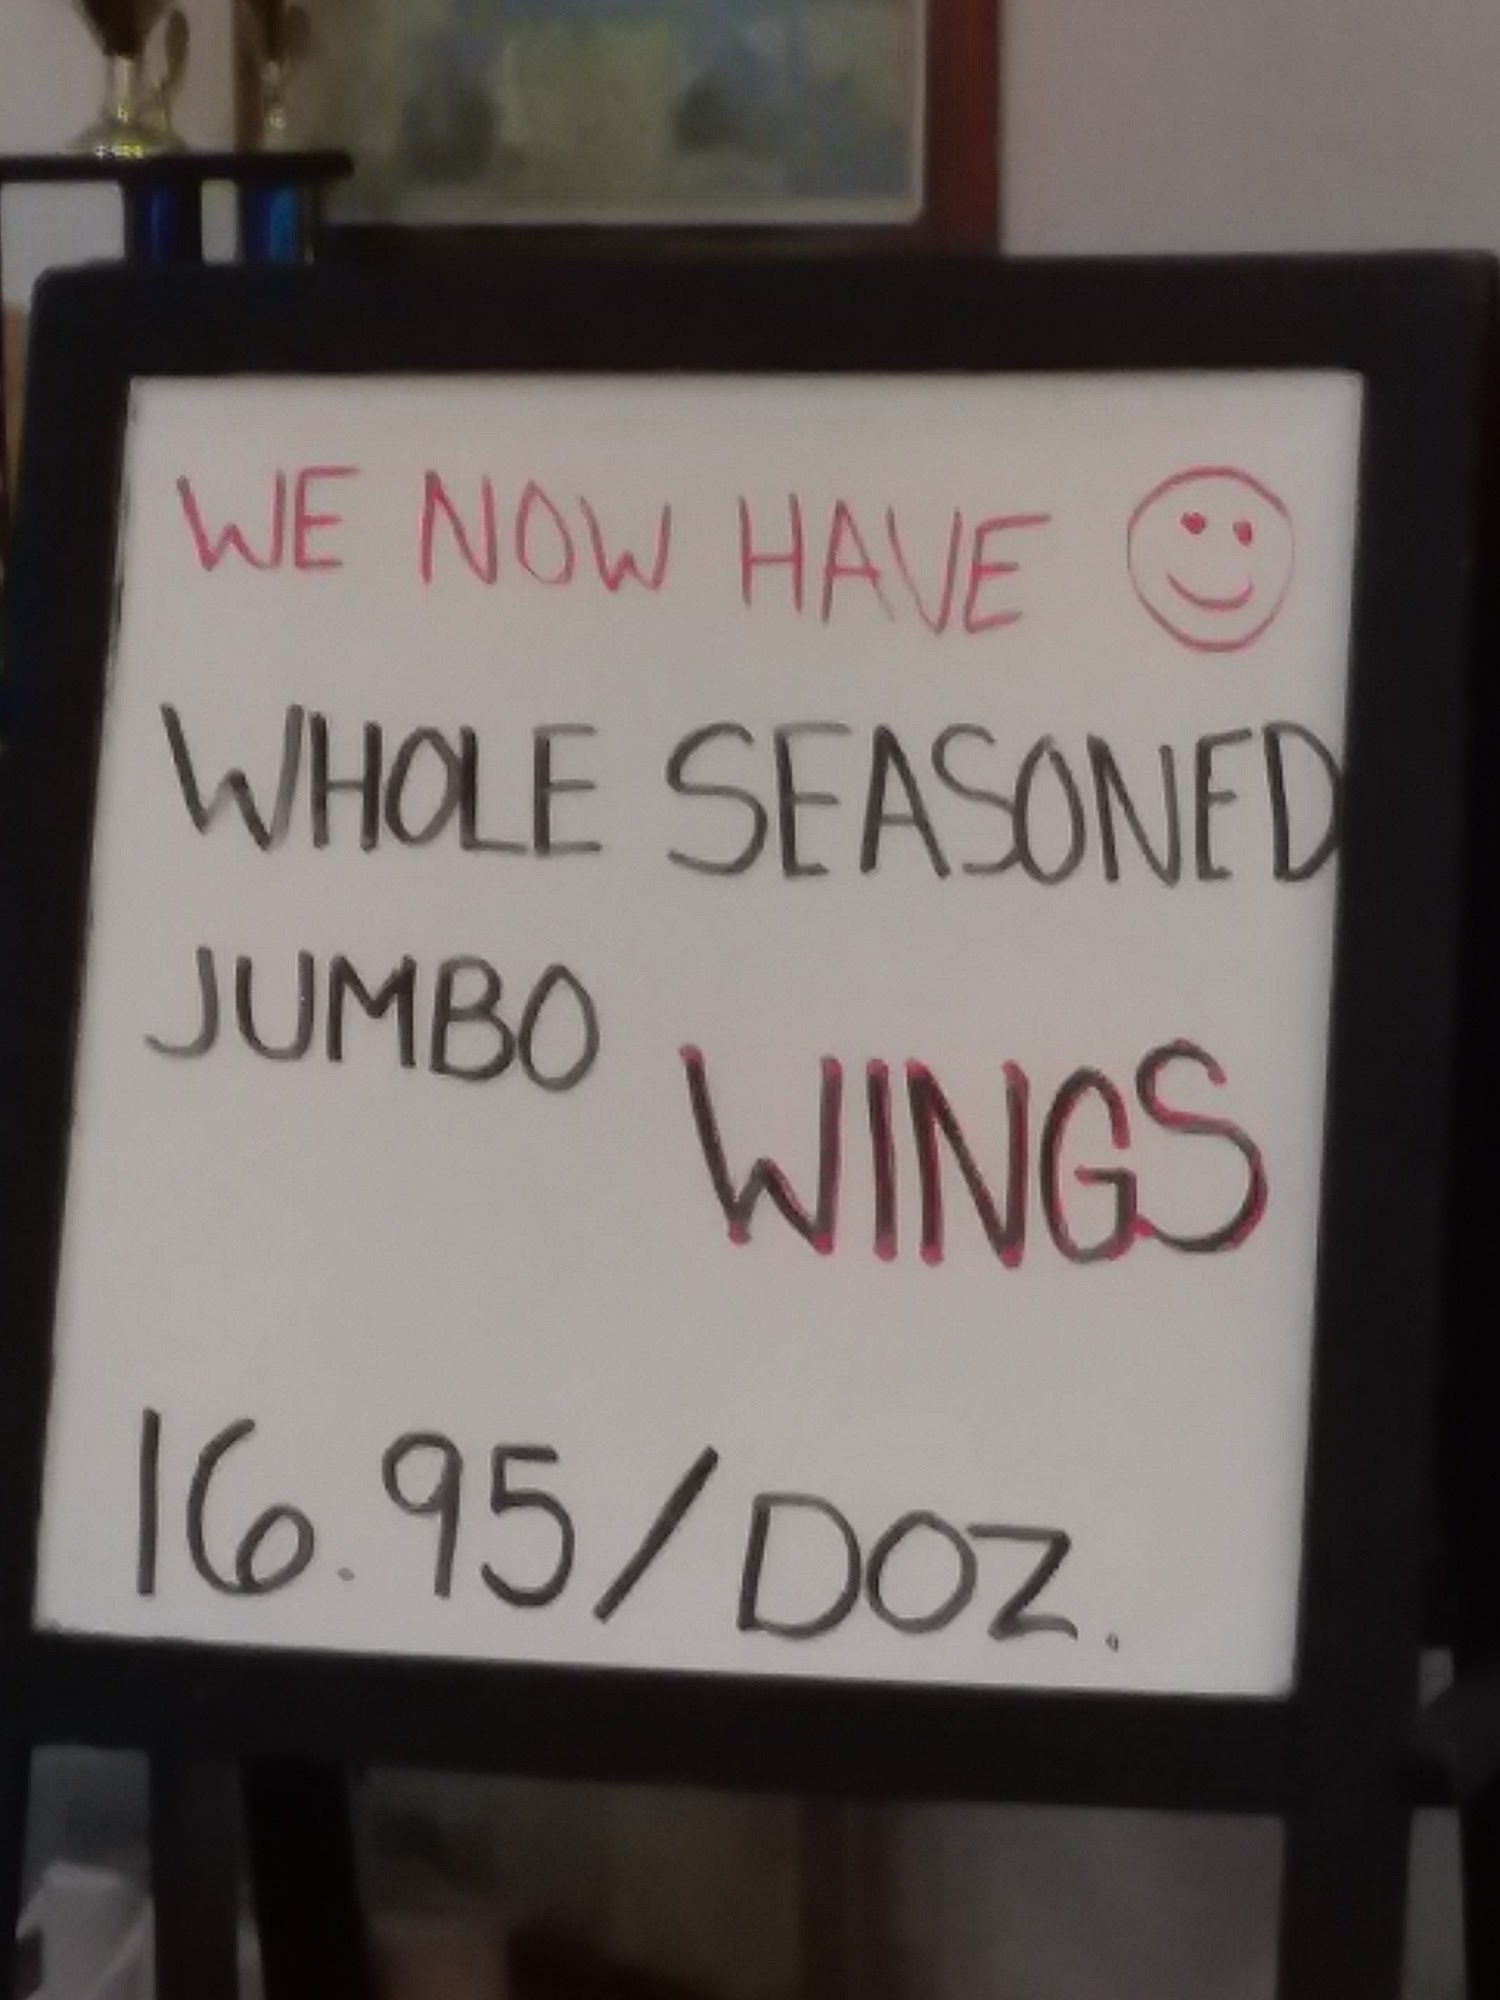 WE NOW HAVE
WHOLE SEASONED
JUMBO
WINGS
16.95/DOZ.